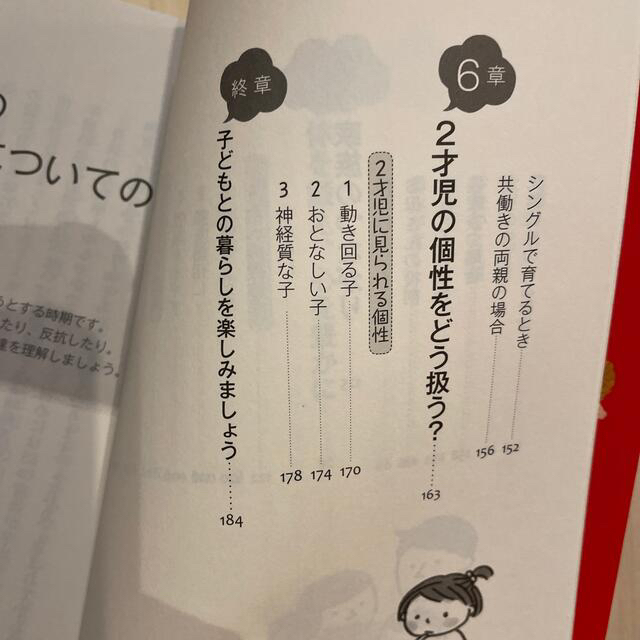 シングルで育てるとき 152
共働きの両親の場合 156
6章
2才児の個性をどう扱う? 163
2才児に見られる個性
1 動き回る子 170
2 おとなしい子 174
3 神経質な子 178
終章
子どもとの暮らしを楽しみましょう 184
の
についての
うとする時期です。
たり、反抗したり。
達を理解しましょう。